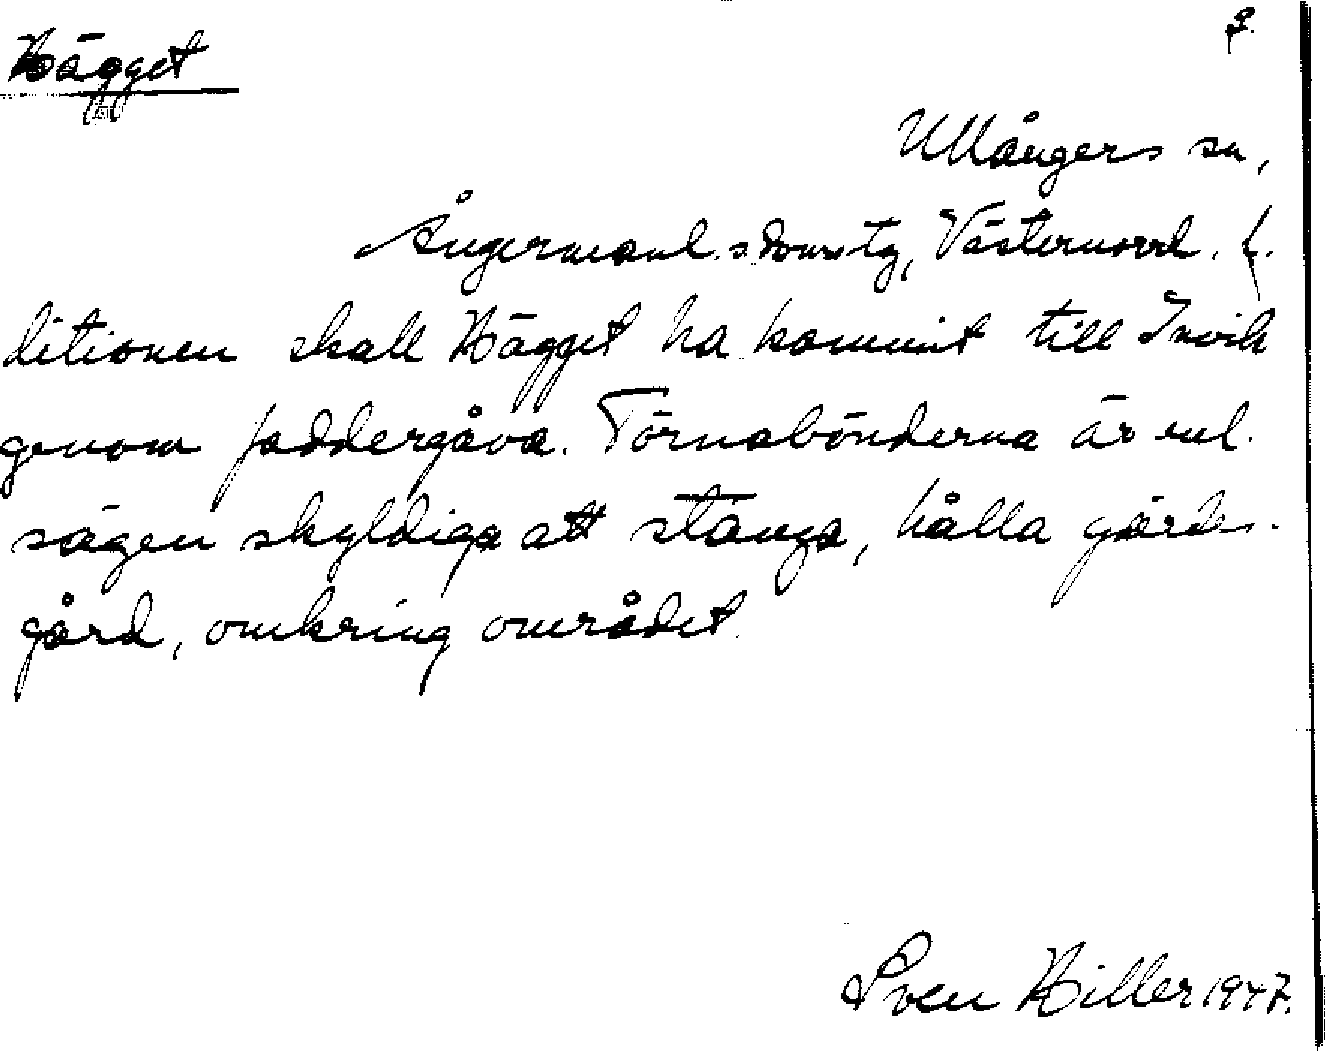 Hägget
3.
Ullångers sn,
Ångermanl. s domstg, Västernorrl. l.
ditionen skall Hägget ha kommit till Invik
genom faddergåva. Törnabönderna är enl.
sägen skyldiga att stänga, hålla gärds-
gård, omkring området.
Sven Hiller 1947.